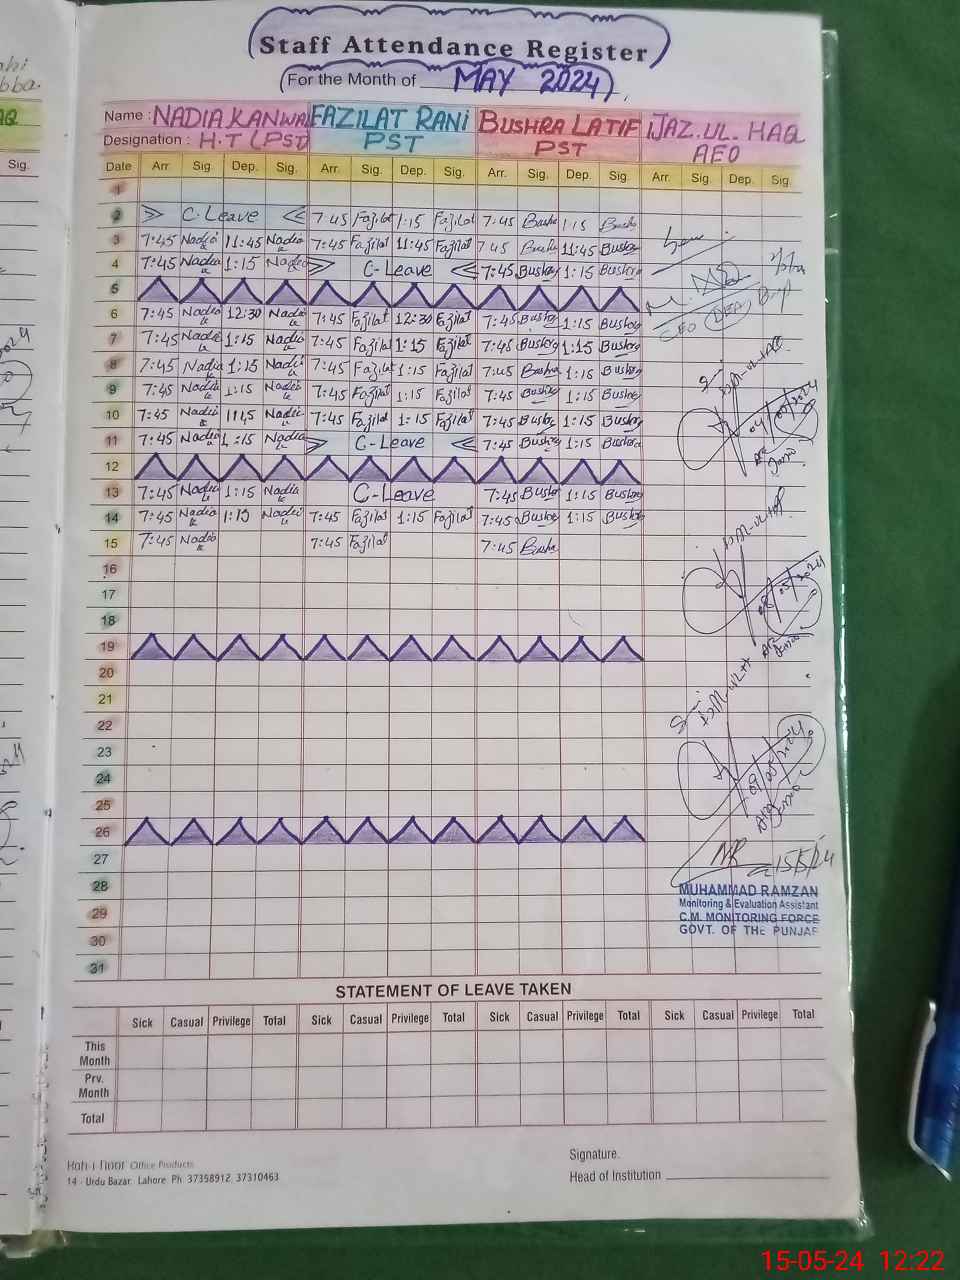 Staff Attendance Register
(For the Month of MAY 2024)
Name : NADIA KANWAL FAZILAT RANI BUSHRA LATIF IJAZ.UL.HAQ
Designation : H.T (PST) PST PST AEO
Date Arr. Sig. Dep. Sig. Arr. Sig. Dep. Sig. Arr. Sig. Dep. Sig. Arr. Sig. Dep. Sig.
1
2 C-Leave 7:45 Fazilat 1:15 Fazilat 7:45 Bushra 1:15 Bushra
3 7:45 Nadia 11:45 Nadia 7:45 Fazilat 11:45 Fazilat 7:45 Bushra 11:45 Bushra
4 7:45 Nadia 1:15 Nadia C-Leave 7:45 Bushra 1:15 Bushra
5
6 7:45 Nadia 12:30 Nadia 7:45 Fazilat 12:30 Fazilat 7:45 Bushra 1:15 Bushra
7 7:45 Nadia 1:15 Nadia 7:45 Fazilat 1:15 Fazilat 7:45 Bushra 1:15 Bushra
8 7:45 Nadia 1:15 Nadia 7:45 Fazilat 1:15 Fazilat 7:45 Bushra 1:15 Bushra
9 7:45 Nadia 1:15 Nadia 7:45 Fazilat 1:15 Fazilat 7:45 Bushra 1:15 Bushra
10 7:45 Nadia 1:15 Nadia 7:45 Fazilat 1:15 Fazilat 7:45 Bushra 1:15 Bushra
11 7:45 Nadia 1:15 Nadia C-Leave 7:45 Bushra 1:15 Bushra
12
13 7:45 Nadia 1:15 Nadia C-Leave 7:45 Bushra 1:15 Bushra
14 7:45 Nadia 1:15 Nadia 7:45 Fazilat 1:15 Fazilat 7:45 Bushra 1:15 Bushra
15 7:45 Nadia 7:45 Fazilat 7:45 Bushra
16
17
18
19
20
21
22
23
24
25
26
27
28
29
30
31
CEO (DEA)
08/05/2024
09/05/2024
15/5/24
MUHAMMAD RAMZAN
Monitoring & Evaluation Assistant
C.M. MONITORING FORCE
GOVT. OF THE PUNJAB
STATEMENT OF LEAVE TAKEN
Sick Casual Privilege Total Sick Casual Privilege Total Sick Casual Privilege Total Sick Casual Privilege Total
This Month
Prv. Month
Total
Koh-i-Noor Office Products
14 - Urdu Bazar, Lahore Ph: 37358912, 37310463
Signature.
Head of Institution
Sig.
15-05-24 12:22